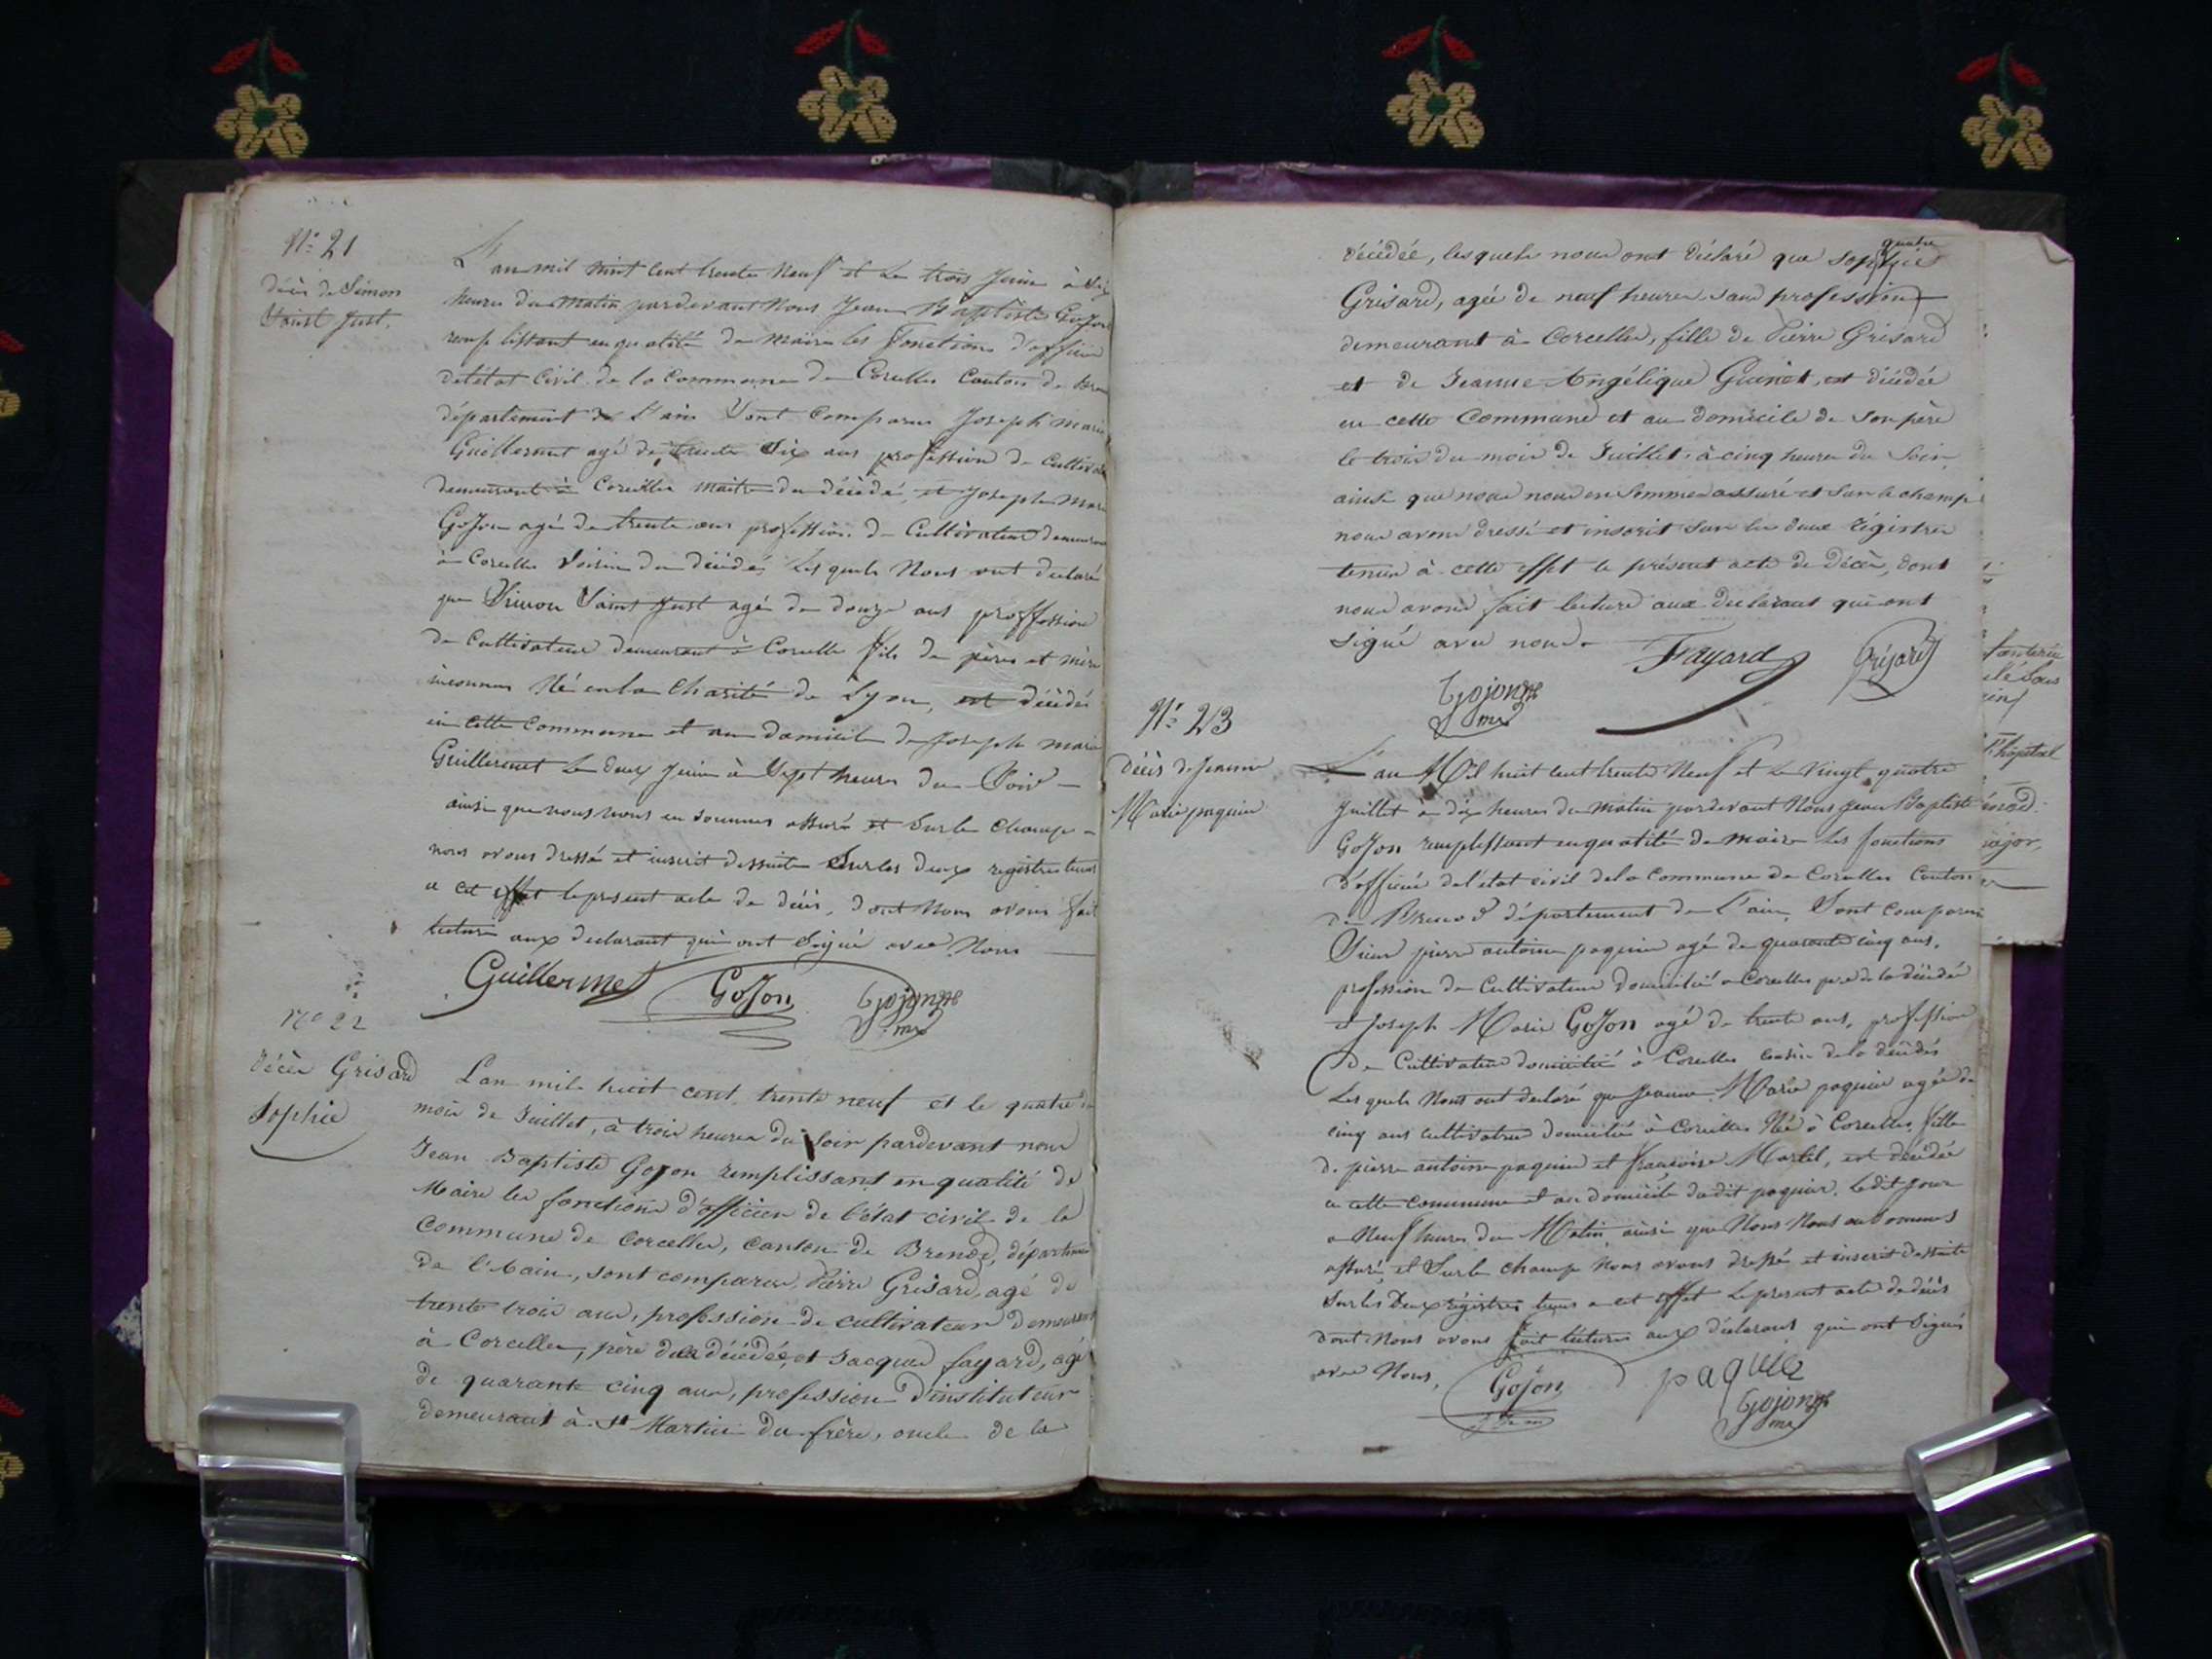 N° 21
décès de Simon
Saint Just.
L'an mil huit cent trente neuf et le trois juin à six
heures du matin pardevant Nous Jean Baptiste Gojon
remplissant en qualité de maire les fonctions d'officier
de l'état civil de la commune de Corcelles canton de
département de L'ain Sont comparus Joseph marie
Guillermet agé de trente six ans profession de cultivateur
demeurant à Corcelles maitre du décédé et Joseph marie
Gojon agé de trente ans profession de Cultivateur demeurant
à Corcelles voisin du décédé, Lesquels Nous ont declaré
que Simon Saint Just agé de douze ans proffession
de cultivateur demeurant à Corcelle fils de pères et mère
inconnus Né en la charité de Lyon, est décédé
en cette commune et au domicile de Joseph marie
Guillermet Le deux juin à Sept heures du Soir
ainsi que nous nous en sommes assuré et Sur le champ
nous avons dressé et inscrit dessuite Sur les deux registres tenus
a cet effet le present acte de décès, dont Nous avons fait
lecture aux declarant qui ont Signé avec Nous
Guillermet Gojon Gojon
mre
N° 22
Décès Grisard
Sophie
L'an mile huit cent trente neuf et le quatre du
mois de Juillet, à trois heures du soir pardevant nous
Jean Baptiste Gojon remplissant en qualité de
Maire les fonctions d'officier de l'état civil de la
Commune de Corcelles, canton de Brenod, département
de l'Ain, sont comparus Pierre Grisard, agé de
trente trois ans, profession de cultivateur demeurant
à Corcelles, père de la décédée, et Jacques fayard, agé
de quarante cinq ans, profession d'instituteur
demeurant à St Martin du frêne, oncle de la
décédée, lesquels nous ont déclaré que sophie
quatre
Grisard, agée de neuf heures sans profession
demeurant à Corcelles, fille de Pierre Grisard
et de Jeanne Angélique Guinet, est décédée
en cette Commune et au domicile de son père
le trois du mois de Juillet, à cinq heures du Soir
ainsi que nous nous en sommes assuré et sur le champ
nous avons dressé et inscrit sur les deux régistres
tenus à cette effet le présent acte de décès, dont
nous avons fait lecture aux declarant qui ont
signé avec nous.
Fayard Gréjard
Gojon
mre
N° 23
décès de jeanne
Marie paquin
L'an Mil huit cent trente Neuf et Le vingt quatre
juillet à dix heures du matin pardevant Nous jean Baptiste
Gojon remplissant en qualité de maire les fonctions
d'officier de l'etat civil de la commune de Corcelles canton
de Brenod département de L'ain, Sont comparus
Sieur pierre antoine paquin agé de quarante cinq ans,
profession de cultivateur domicilié a Corcelles père de la décédée
et Joseph Marie Gojon agé de trente ans, profession
de Cultivateur domicilié à Corcelles cousin de la décédée
Lesquels Nous ont declaré que jeanne Marie paquin agée de
cinq ans cultivatrice domicilié à Corcelles Née à Corcelles, fille
de pierre antoine paquin et françoise Martel, est décédée
en cette commune et au domicile dudit paquin, Ledit jour
a Neuf heures du Matin, ainsi que Nous Nous en Sommes
assuré, et Sur le champ Nous avons dressé et inscrit dessuite
Sur les Deux régistres tenus a cet effet le present acte de décès
dont Nous avons fait lecture aux déclarans qui ont Signés
avec Nous.
Gojon paquin
Gojon
mre
lé sous
l'hôpital
major,